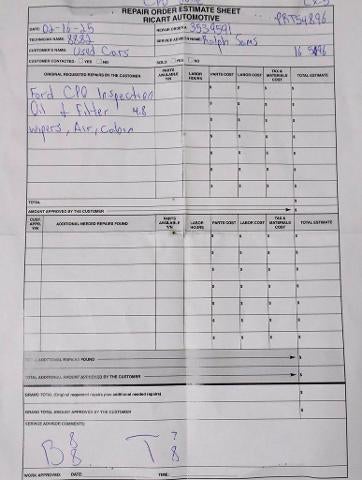 REPAIR ORDER ESTIMATE SHEET
RICART AUTOMOTIVE
PRT54896
DATE: 02-16-25 REPAIR ORDER# 3539591
TECHNICIAN NAME: SERVICE ADVISOR NAME: Ralph Sams
CUSTOMER'S NAME: Used Cars
CUSTOMER CONTACTED: YES NO SOLD: YES NO
ORIGINAL REQUESTED REPAIRS BY THE CUSTOMER PARTS AVAILABLE Y/N LABOR HOURS PARTS COST LABOR COST TAX & MATERIALS COST TOTAL ESTIMATE
Ford CPO Inspection $ $ $ $
Oil & Filter 4.8 $ $ $ $
wipers, Air, Cabin $ $ $ $
$ $ $ $
$ $ $ $
$ $ $ $
TOTAL $
AMOUNT APPROVED BY THE CUSTOMER $
CUST. APPR. Y/N ADDITIONAL NEEDED REPAIRS FOUND PARTS AVAILABLE Y/N LABOR HOURS PARTS COST LABOR COST TAX & MATERIALS COST TOTAL ESTIMATE
$ $ $ $
$ $ $ $
$ $ $ $
$ $ $ $
$ $ $ $
$ $ $ $
TOTAL ADDITIONAL REPAIRS FOUND $
TOTAL ADDITIONAL AMOUNT APPROVED BY THE CUSTOMER $
GRAND TOTAL (Original requested repairs plus additional needed repairs) $
GRAND TOTAL AMOUNT APPROVED BY THE CUSTOMER $
SERVICE ADVISOR COMMENTS:
B 8 8 T 7 8
WORK APPROVED: DATE: TIME: